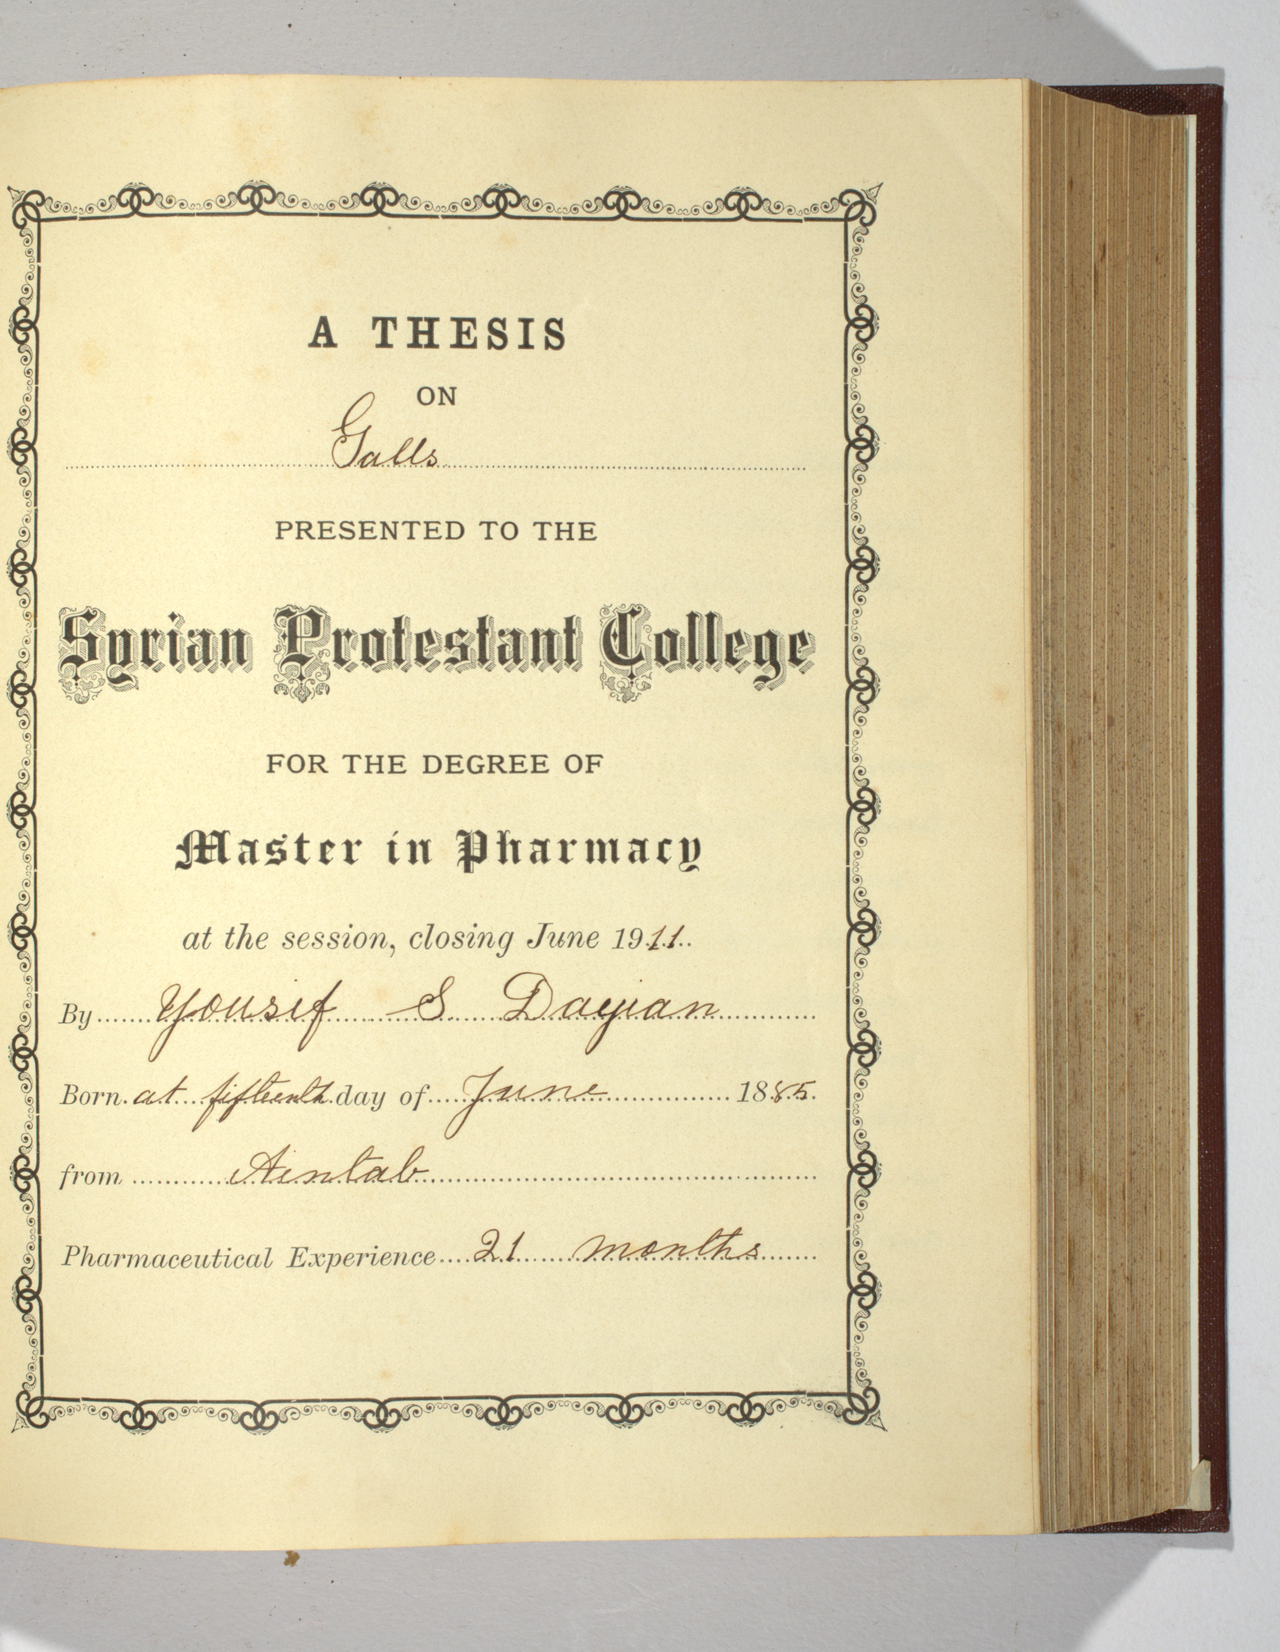 A THESIS
ON
Galls
PRESENTED TO THE
Syrian Protestant College
FOR THE DEGREE OF
Master in Pharmacy
at the session, closing June 1911
By Yousif S Dayian
Born at fifteenth day of June 1885
from Aintab
Pharmaceutical Experience 21 months